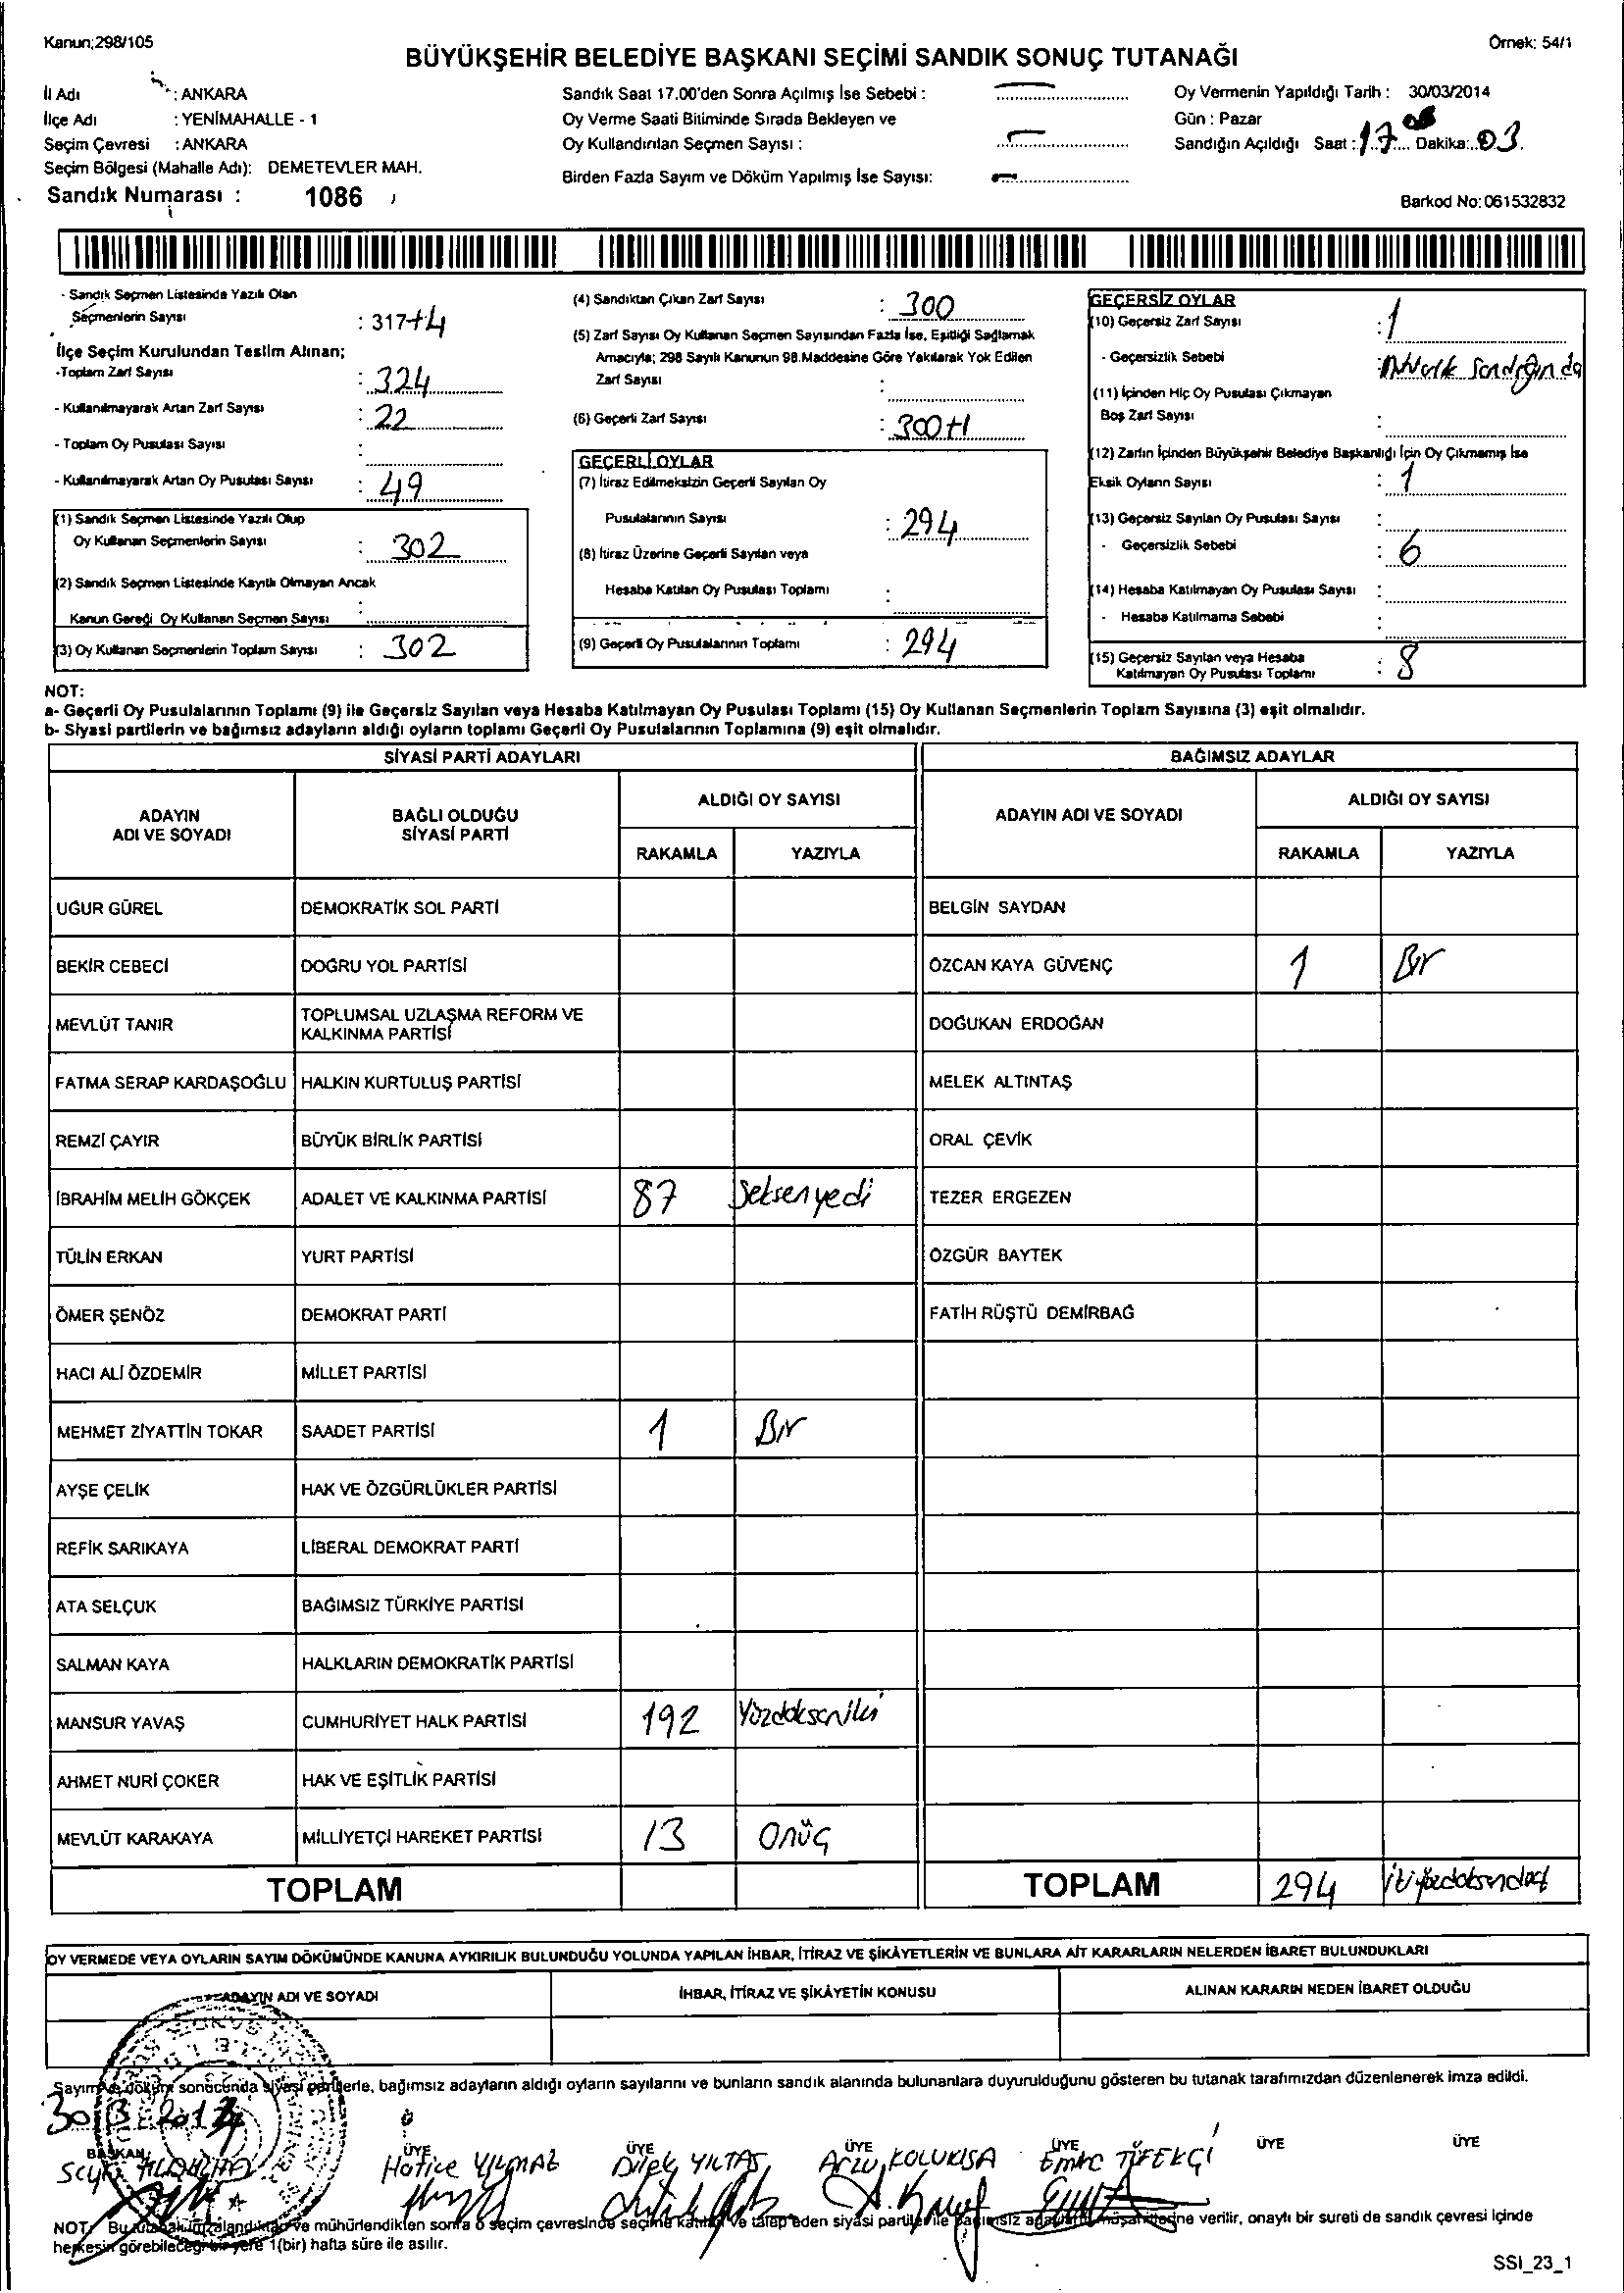 Kanun;298/105
Örnek: 54/1
BÜYÜKŞEHİR BELEDİYE BAŞKANI SEÇİMİ SANDIK SONUÇ TUTANAĞI
İl Adı : ANKARA
İlçe Adı : YENİMAHALLE - 1
Seçim Çevresi : ANKARA
Seçim Bölgesi (Mahalle Adı): DEMETEVLER MAH.
Sandık Numarası : 1086
Sandık Saat 17.00'den Sonra Açılmış İse Sebebi :
Oy Verme Saati Bitiminde Sırada Bekleyen ve
Oy Kullandırılan Seçmen Sayısı :
Birden Fazla Sayım ve Döküm Yapılmış İse Sayısı:
Oy Vermenin Yapıldığı Tarih : 30/03/2014
Gün : Pazar
Sandığın Açıldığı Saat : 17 Dakika: 03
Barkod No: 061532832
- Sandık Seçmen Listesinde Yazılı Olan
Seçmenlerin Sayısı : 317+4
İlçe Seçim Kurulundan Teslim Alınan;
-Toplam Zarf Sayısı : 324
- Kullanılmayarak Artan Zarf Sayısı : 22
- Toplam Oy Pusulası Sayısı :
- Kullanılmayarak Artan Oy Pusulası Sayısı : 49
(1) Sandık Seçmen Listesinde Yazılı Olup
Oy Kullanan Seçmenlerin Sayısı : 302
(2) Sandık Seçmen Listesinde Kayıtlı Olmayan Ancak
Kanun Gereği Oy Kullanan Seçmen Sayısı :
(3) Oy Kullanan Seçmenlerin Toplam Sayısı : 302
(4) Sandıktan Çıkan Zarf Sayısı : 300
(5) Zarf Sayısı Oy Kullanan Seçmen Sayısından Fazla İse, Eşitliği Sağlamak
Amacıyla; 298 Sayılı Kanunun 98.Maddesine Göre Yakılarak Yok Edilen
Zarf Sayısı :
(6) Geçerli Zarf Sayısı : 300+1
GEÇERLİ OYLAR
(7) İtiraz Edilmeksizin Geçerli Sayılan Oy
Pusulalarının Sayısı : 294
(8) İtiraz Üzerine Geçerli Sayılan veya
Hesaba Katılan Oy Pusulası Toplamı :
(9) Geçerli Oy Pusulalarının Toplamı : 294
GEÇERSİZ OYLAR
(10) Geçersiz Zarf Sayısı : 1
- Geçersizlik Sebebi : sandığında
(11) İçinden Hiç Oy Pusulası Çıkmayan
Boş Zarf Sayısı :
(12) Zarfın İçinden Büyükşehir Belediye Başkanlığı İçin Oy Çıkmamış İse
Eksik Oyların Sayısı : 1
(13) Geçersiz Sayılan Oy Pusulası Sayısı :
- Geçersizlik Sebebi : 6
(14) Hesaba Katılmayan Oy Pusulası Sayısı :
- Hesaba Katılmama Sebebi :
(15) Geçersiz Sayılan veya Hesaba
Katılmayan Oy Pusulası Toplamı : 8
NOT:
a- Geçerli Oy Pusulalarının Toplamı (9) ile Geçersiz Sayılan veya Hesaba Katılmayan Oy Pusulası Toplamı (15) Oy Kullanan Seçmenlerin Toplam Sayısına (3) eşit olmalıdır.
b- Siyasi partilerin ve bağımsız adayların aldığı oyların toplamı Geçerli Oy Pusulalarının Toplamına (9) eşit olmalıdır.
SİYASİ PARTİ ADAYLARI BAĞIMSIZ ADAYLAR
ADAYIN ADI VE SOYADI BAĞLI OLDUĞU SİYASİ PARTİ ALDIĞI OY SAYISI ADAYIN ADI VE SOYADI ALDIĞI OY SAYISI
RAKAMLA YAZIYLA RAKAMLA YAZIYLA
UĞUR GÜREL DEMOKRATİK SOL PARTİ BELGİN SAYDAN
BEKİR CEBECİ DOĞRU YOL PARTİSİ ÖZCAN KAYA GÜVENÇ 1 Bir
MEVLÜT TANIR TOPLUMSAL UZLAŞMA REFORM VE KALKINMA PARTİSİ DOĞUKAN ERDOĞAN
FATMA SERAP KARDAŞOĞLU HALKIN KURTULUŞ PARTİSİ MELEK ALTINTAŞ
REMZİ ÇAYIR BÜYÜK BİRLİK PARTİSİ ORAL ÇEVİK
İBRAHİM MELİH GÖKÇEK ADALET VE KALKINMA PARTİSİ 87 Seksenyedi TEZER ERGEZEN
TÜLİN ERKAN YURT PARTİSİ ÖZGÜR BAYTEK
ÖMER ŞENÖZ DEMOKRAT PARTİ FATİH RÜŞTÜ DEMİRBAĞ
HACI ALİ ÖZDEMİR MİLLET PARTİSİ
MEHMET ZİYATTİN TOKAR SAADET PARTİSİ 1 Bir
AYŞE ÇELİK HAK VE ÖZGÜRLÜKLER PARTİSİ
REFİK SARIKAYA LİBERAL DEMOKRAT PARTİ
ATA SELÇUK BAĞIMSIZ TÜRKİYE PARTİSİ
SALMAN KAYA HALKLARIN DEMOKRATİK PARTİSİ
MANSUR YAVAŞ CUMHURİYET HALK PARTİSİ 192 Yüzdoksaniki
AHMET NURİ ÇOKER HAK VE EŞİTLİK PARTİSİ
MEVLÜT KARAKAYA MİLLİYETÇİ HAREKET PARTİSİ 13 onüç
TOPLAM TOPLAM 294 ikiyüzdoksandört
OY VERMEDE VEYA OYLARIN SAYIM DÖKÜMÜNDE KANUNA AYKIRILIK BULUNDUĞU YOLUNDA YAPILAN İHBAR, İTİRAZ VE ŞİKÂYETLERİN VE BUNLARA AİT KARARLARIN NELERDEN İBARET BULUNDUKLARI
ADAYIN ADI VE SOYADI İHBAR, İTİRAZ VE ŞİKÂYETİN KONUSU ALINAN KARARIN NEDEN İBARET OLDUĞU
Sayım ve döküm sonucunda siyasi partilerle, bağımsız adayların aldığı oyların sayılarını ve bunların sandık alanında bulunanlara duyurulduğunu gösteren bu tutanak tarafımızdan düzenlenerek imza edildi.
BAŞKAN ÜYE ÜYE ÜYE ÜYE ÜYE ÜYE
Hatice YILMAZ Dilek YILTAŞ Arzu KOLUKISA Emre TÜFEKÇİ
NOT: Bu tutanak imzalandıktan ve mühürlendikten sonra o seçim çevresinde seçime katılan ve talep eden siyasi partiler ile bağımsız adayların müşahitlerine verilir, onaylı bir sureti de sandık çevresi içinde
herkesin görebileceği bir yere 1(bir) hafta süre ile asılır.
SSI_23_1